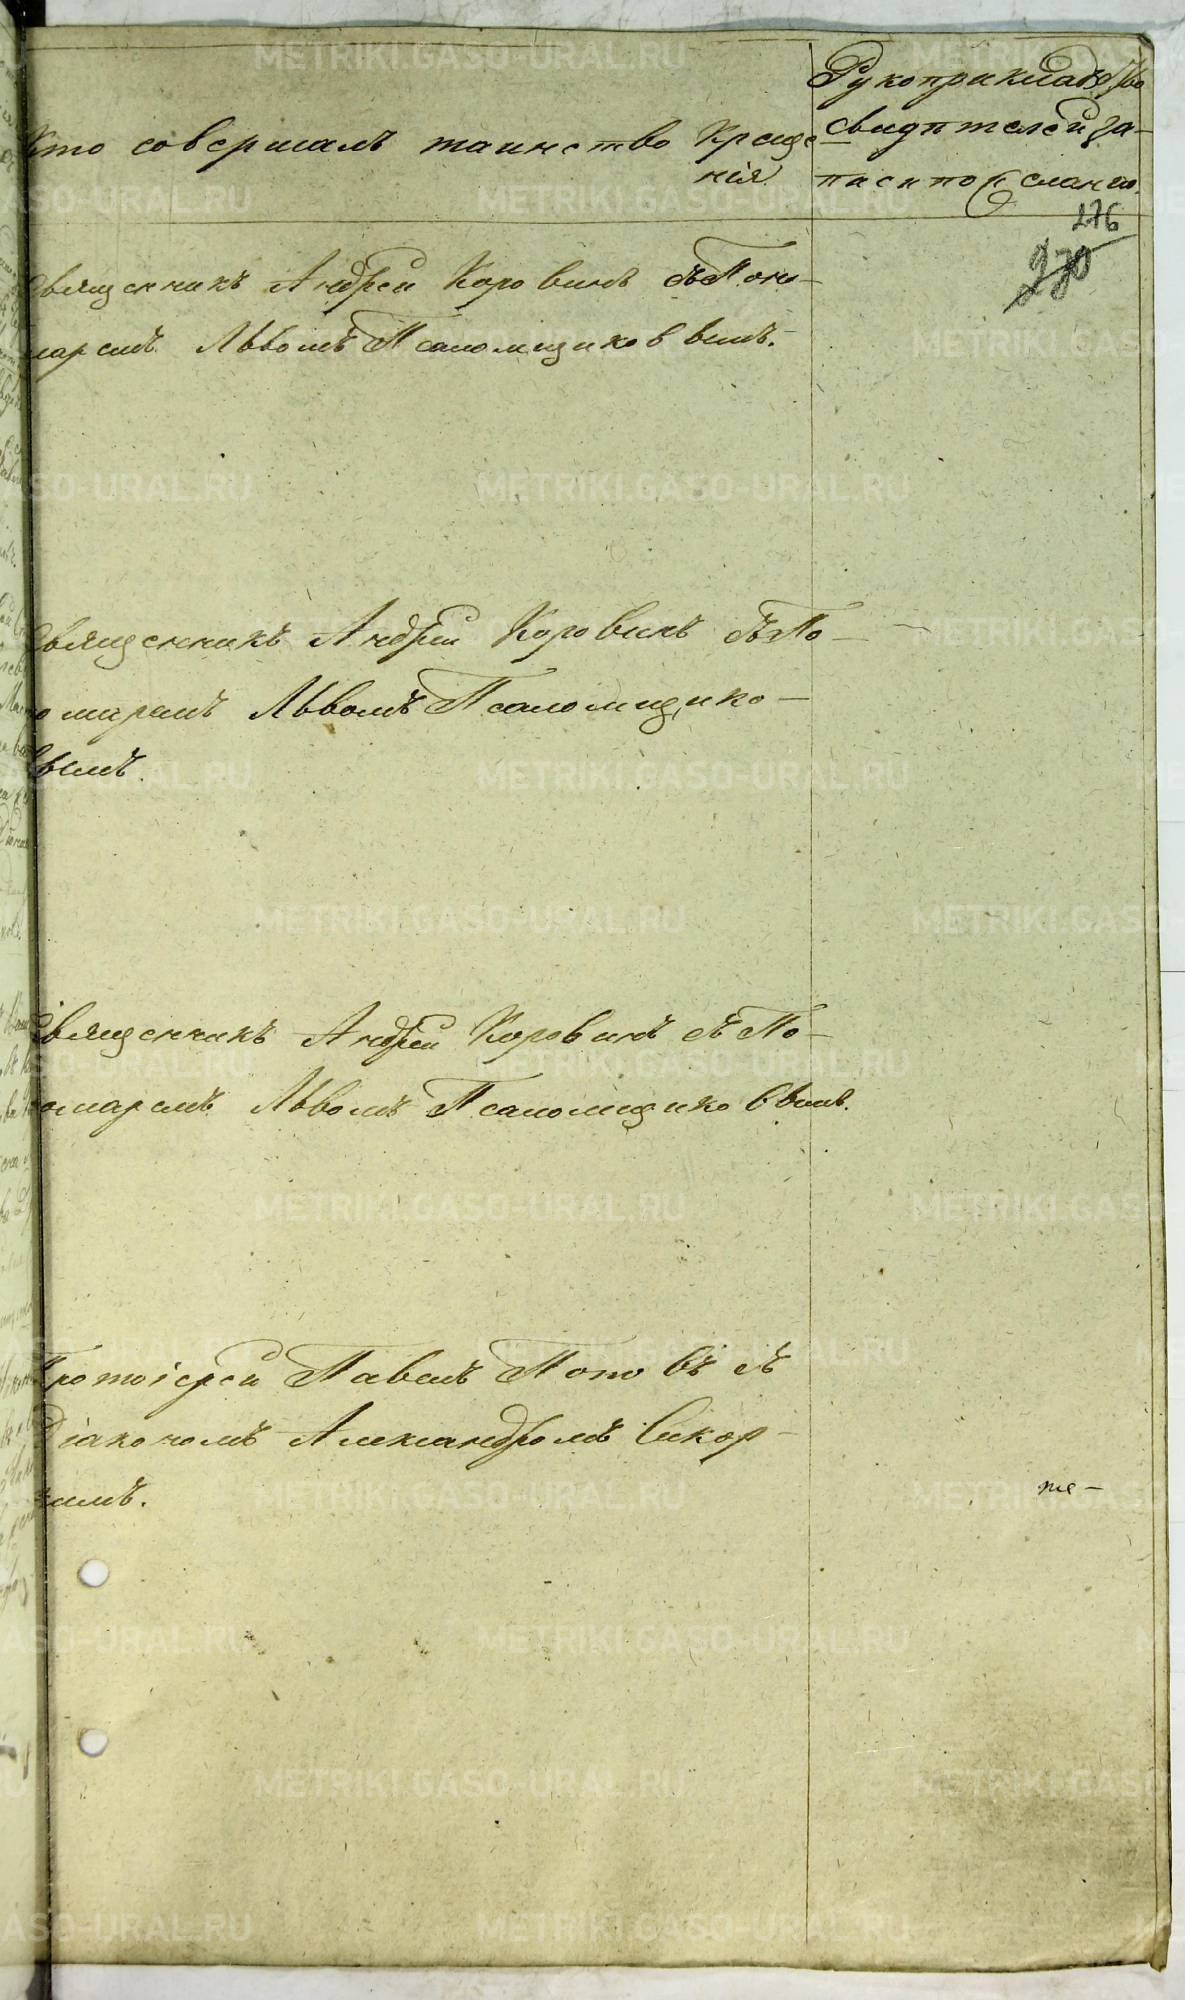 Кто совершалъ таинство Креще-
нія.
Рукоприкладство
свидѣтелей за-
писи по желанію.
276
270
Священникъ Андрей Коровинъ съ Поно-
маремъ Львомъ Псаломщиковымъ.
Священникъ Андрей Коровинъ съ По-
номаремъ Львомъ Псаломщико-
вымъ.
Священникъ Андрей Коровинъ съ По-
номаремъ Львомъ Псаломщиковымъ.
Протоіерей Павелъ Поповъ съ
Діакономъ Александромъ